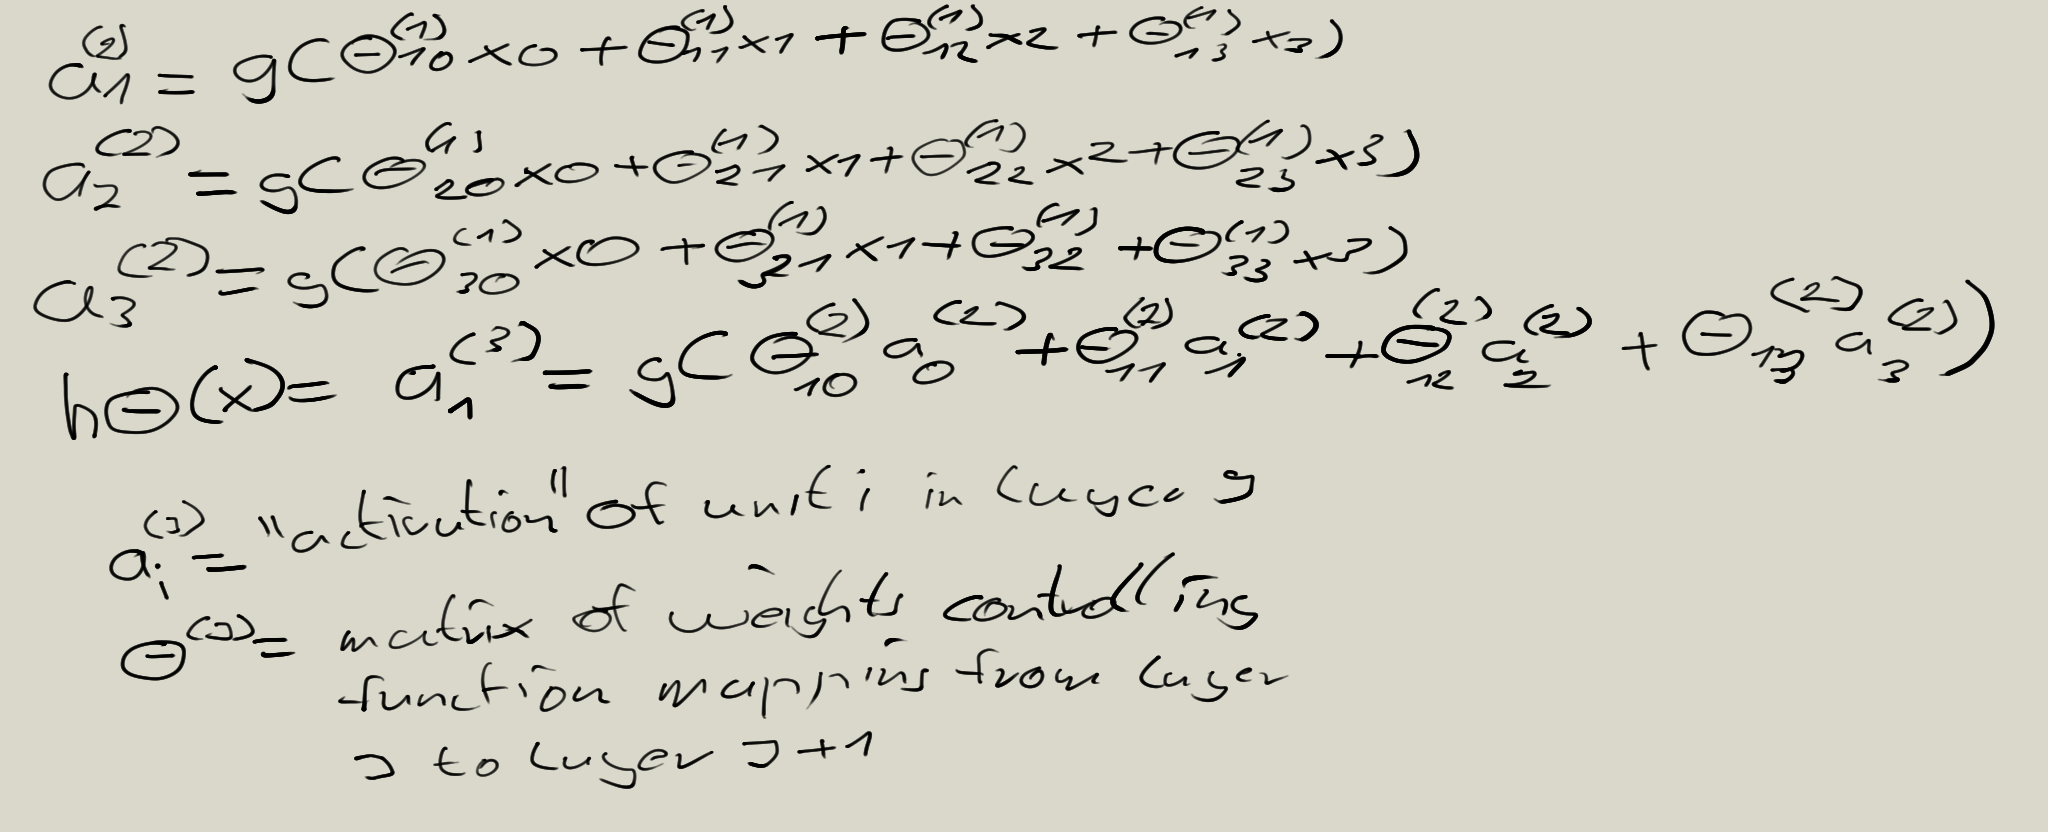 a₁⁽²⁾ = g(Θ₁₀⁽¹⁾x0 + Θ₁₁⁽¹⁾x1 + Θ₁₂⁽¹⁾x2 + Θ₁₃⁽¹⁾x3)
a₂⁽²⁾ = g(Θ₂₀⁽¹⁾x0 + Θ₂₁⁽¹⁾x1 + Θ₂₂⁽¹⁾x2 + Θ₂₃⁽¹⁾x3)
a₃⁽²⁾ = g(Θ₃₀⁽¹⁾x0 + Θ₃₁⁽¹⁾x1 + Θ₃₂⁽¹⁾ + Θ₃₃⁽¹⁾x3)
hΘ(x) = a₁⁽³⁾ = g(Θ₁₀⁽²⁾a₀⁽²⁾ + Θ₁₁⁽²⁾a₁⁽²⁾ + Θ₁₂⁽²⁾a₂⁽²⁾ + Θ₁₃⁽²⁾a₃⁽²⁾)
aᵢ⁽ʲ⁾ = "activation" of unit i in layer j
Θ⁽ʲ⁾ = matrix of weights controlling
function mapping from layer
j to layer j+1